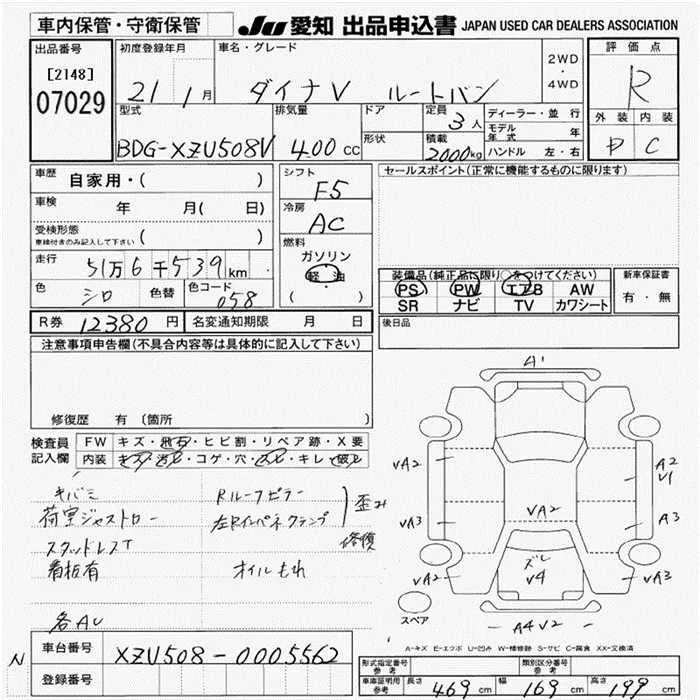 車内保管・守衛保管
JU 愛知 出品申込書 JAPAN USED CAR DEALERS ASSOCIATION
出品番号
[2148]
07029
初度登録年月
21 1 月
車名・グレード
ダイナV ルートバン
2WD
・
4WD
評価点
R
外装 内装
D C
型式
BDG-XZU508V
排気量
400 cc
ドア
形状
定員
3 人
積載
2000kg
ディーラー・並行
モデル年式 年
ハンドル 左・右
車歴 自家用・( )
車検 年 月( 日)
受検形態
車検付きのみ記入して下さい ( )
走行 51万6千539km
色 シロ 色替 色コード 058
シフト
F5
冷房
AC
燃料
ガソリン
軽油
・
( )
セールスポイント(正常に機能するものに限ります)
装備品(純正品に限り○をつけてください)
PS PW エアB AW
SR ナビ TV カワシート
新車保証書
有・無
後日品
R券 12380 円 名変通知期限 月 日
注意事項申告欄(不具合内容等は具体的に記入して下さい)
修復歴 有 〔箇所
検査員記入欄
FW キズ・飛石・ヒビ割・リペア跡・X要
内装 キズ・汚レ・コゲ・穴・スレ・キレ・破レ
キバミ
荷室ジャストロー
スタッドレスT
看板有
各AU
Rルーフピラー
左Rインパネクランプ
歪み
修復
オイルもれ
A1
VA2
VA3
VA2
A2
V1
A3
VA3
VA2
ズレ
V4
A4V2
スペア
A-キズ E-エクボ U-凹み W-補修跡 S-サビ C-腐食 XX-交換済
N
車台番号 XZU508-0005562
登録番号
形式指定番号 参考
類別区分番号 参考
車庫証明用 参考 長さ 469 cm 幅 169 cm 高さ 199 cm